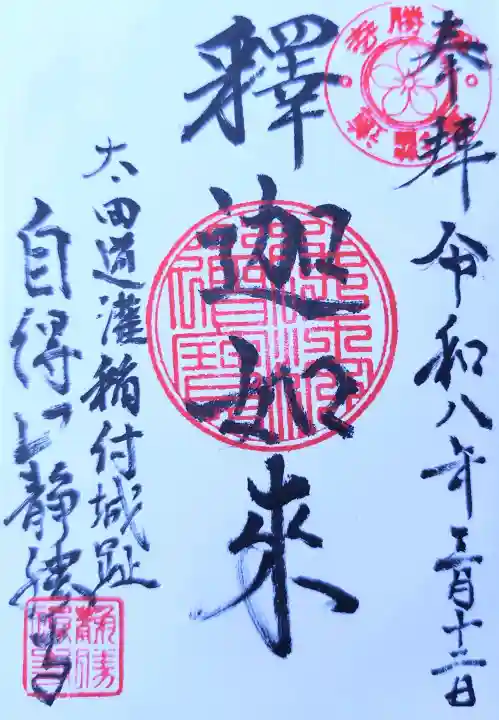 奉拝
令和八年三月十二日
釋迦如來
太田道灌稲付城趾
自得山静勝寺